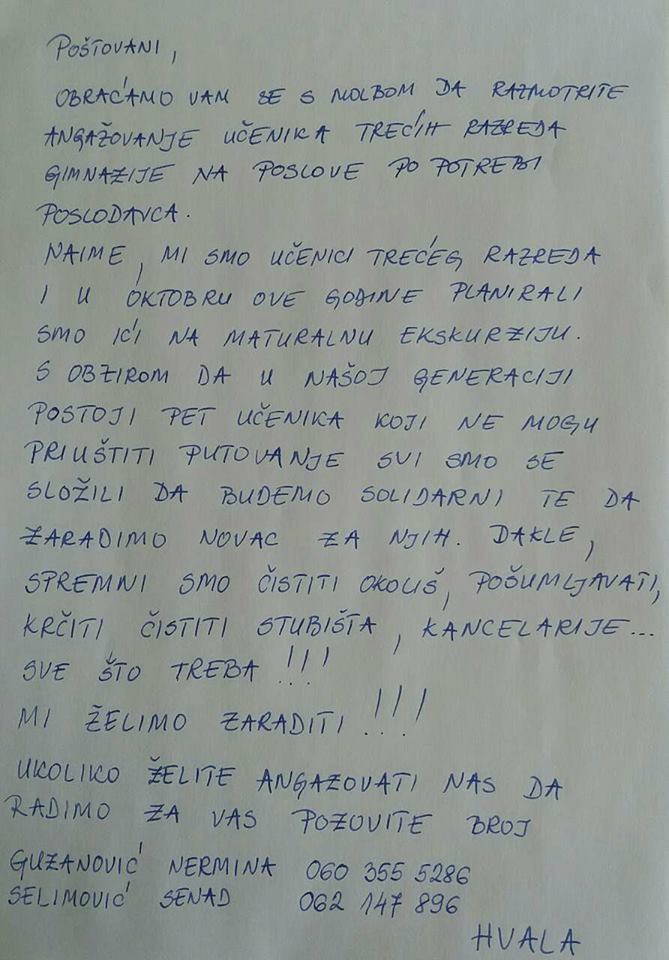 POŠTOVANI,
OBRAĆAMO VAM SE S MOLBOM DA RAZMOTRITE
ANGAŽOVANJE UČENIKA TREĆIH RAZREDA
GIMNAZIJE NA POSLOVE PO POTREBI
POSLODAVCA.
NAIME, MI SMO UČENICI TREĆEG RAZREDA
I U OKTOBRU OVE GODINE PLANIRALI
SMO IĆI NA MATURALNU EKSKURZIJU.
S OBZIROM DA U NAŠOJ GENERACIJI
POSTOJI PET UČENIKA KOJI NE MOGU
PRIUŠTITI PUTOVANJE SVI SMO SE
SLOŽILI DA BUDEMO SOLIDARNI TE DA
ZARADIMO NOVAC ZA NJIH. DAKLE,
SPREMNI SMO ČISTITI OKOLIŠ, POŠUMLJAVATI,
KRČITI ČISTITI STUBIŠTA, KANCELARIJE...
SVE ŠTO TREBA!!!
MI ŽELIMO ZARADITI!!!
UKOLIKO ŽELITE ANGAZOVATI NAS DA
RADIMO ZA VAS POZOVITE BROJ
GUZANOVIĆ NERMINA 060 355 5286
SELIMOVIĆ SENAD 062 147 896
HVALA